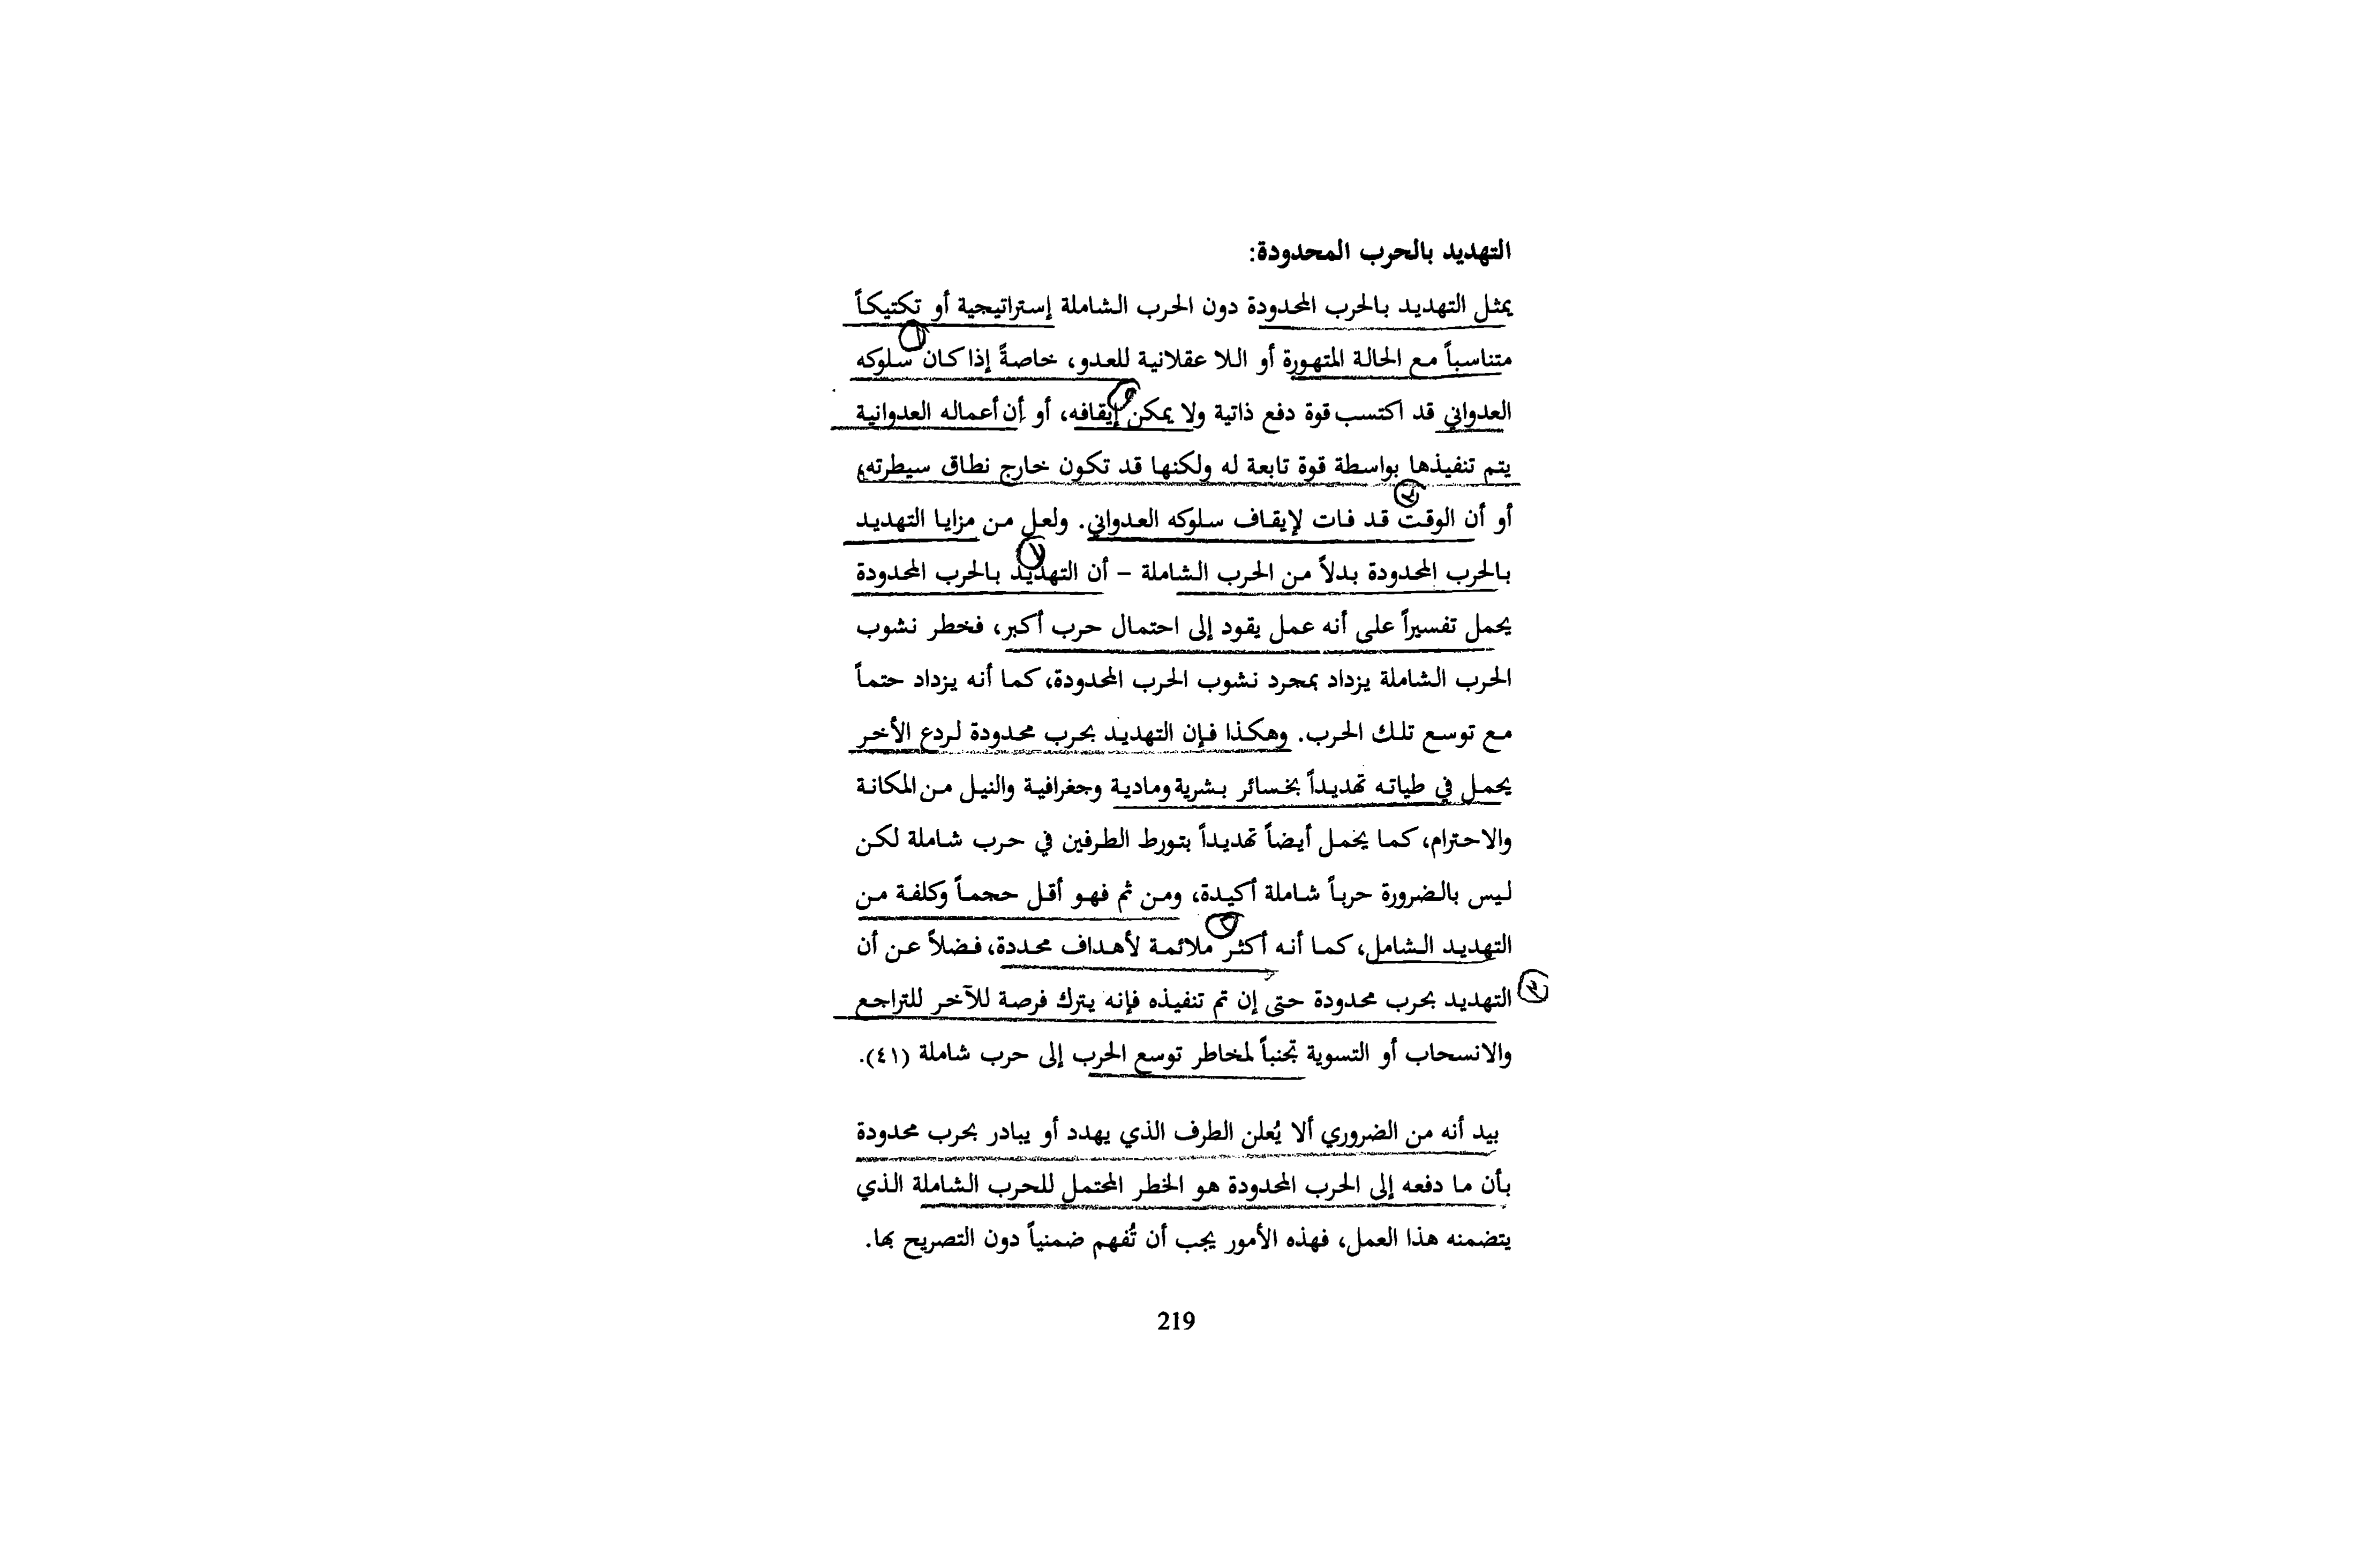 التهديد بالحرب المحدودة:
يمثل التهديد بالحرب المحدودة دون الحرب الشاملة إستراتيجية أو تكتيكاً
متناسباً مع الحالة المتهورة أو اللا عقلانية للعدو، خاصةً إذا كان سلوكه
العدواني قد اكتسب قوة دفع ذاتية ولا يمكن إيقافه، أو أن أعماله العدوانية
يتم تنفيذها بواسطة قوة تابعة له ولكنها قد تكون خارج نطاق سيطرته،
أو أن الوقت قد فات لإيقاف سلوكه العدواني. ولعل من مزايا التهديد
بالحرب المحدودة بدلاً من الحرب الشاملة – أن التهديد بالحرب المحدودة
يحمل تفسيراً على أنه عمل يقود إلى احتمال حرب أكبر، فخطر نشوب
الحرب الشاملة يزداد بمجرد نشوب الحرب المحدودة، كما أنه يزداد حتماً
مع توسع تلك الحرب. وهكذا فإن التهديد بحرب محدودة لردع الأخر
يحمل في طياته تهديداً بخسائر بشرية ومادية وجغرافية والنيل من المكانة
والاحترام، كما يحمل أيضاً تهديداً بتورط الطرفين في حرب شاملة لكن
ليس بالضرورة حرباً شاملة أكيدة، ومن ثم فهو أقل حجماً وكلفة من
التهديد الشامل، كما أنه أكثر ملائمة لأهداف محددة، فضلاً عن أن
التهديد بحرب محدودة حتى إن تم تنفيذه فإنه يترك فرصة للآخر للتراجع
والانسحاب أو التسوية تجنباً لمخاطر توسع الحرب إلى حرب شاملة (٤١).
بيد أنه من الضروري ألا يُعلن الطرف الذي يهدد أو يبادر بحرب محدودة
بأن ما دفعه إلى الحرب المحدودة هو الخطر المحتمل للحرب الشاملة الذي
يتضمنه هذا العمل، فهذه الأمور يجب أن تُفهم ضمنياً دون التصريح بها.
219